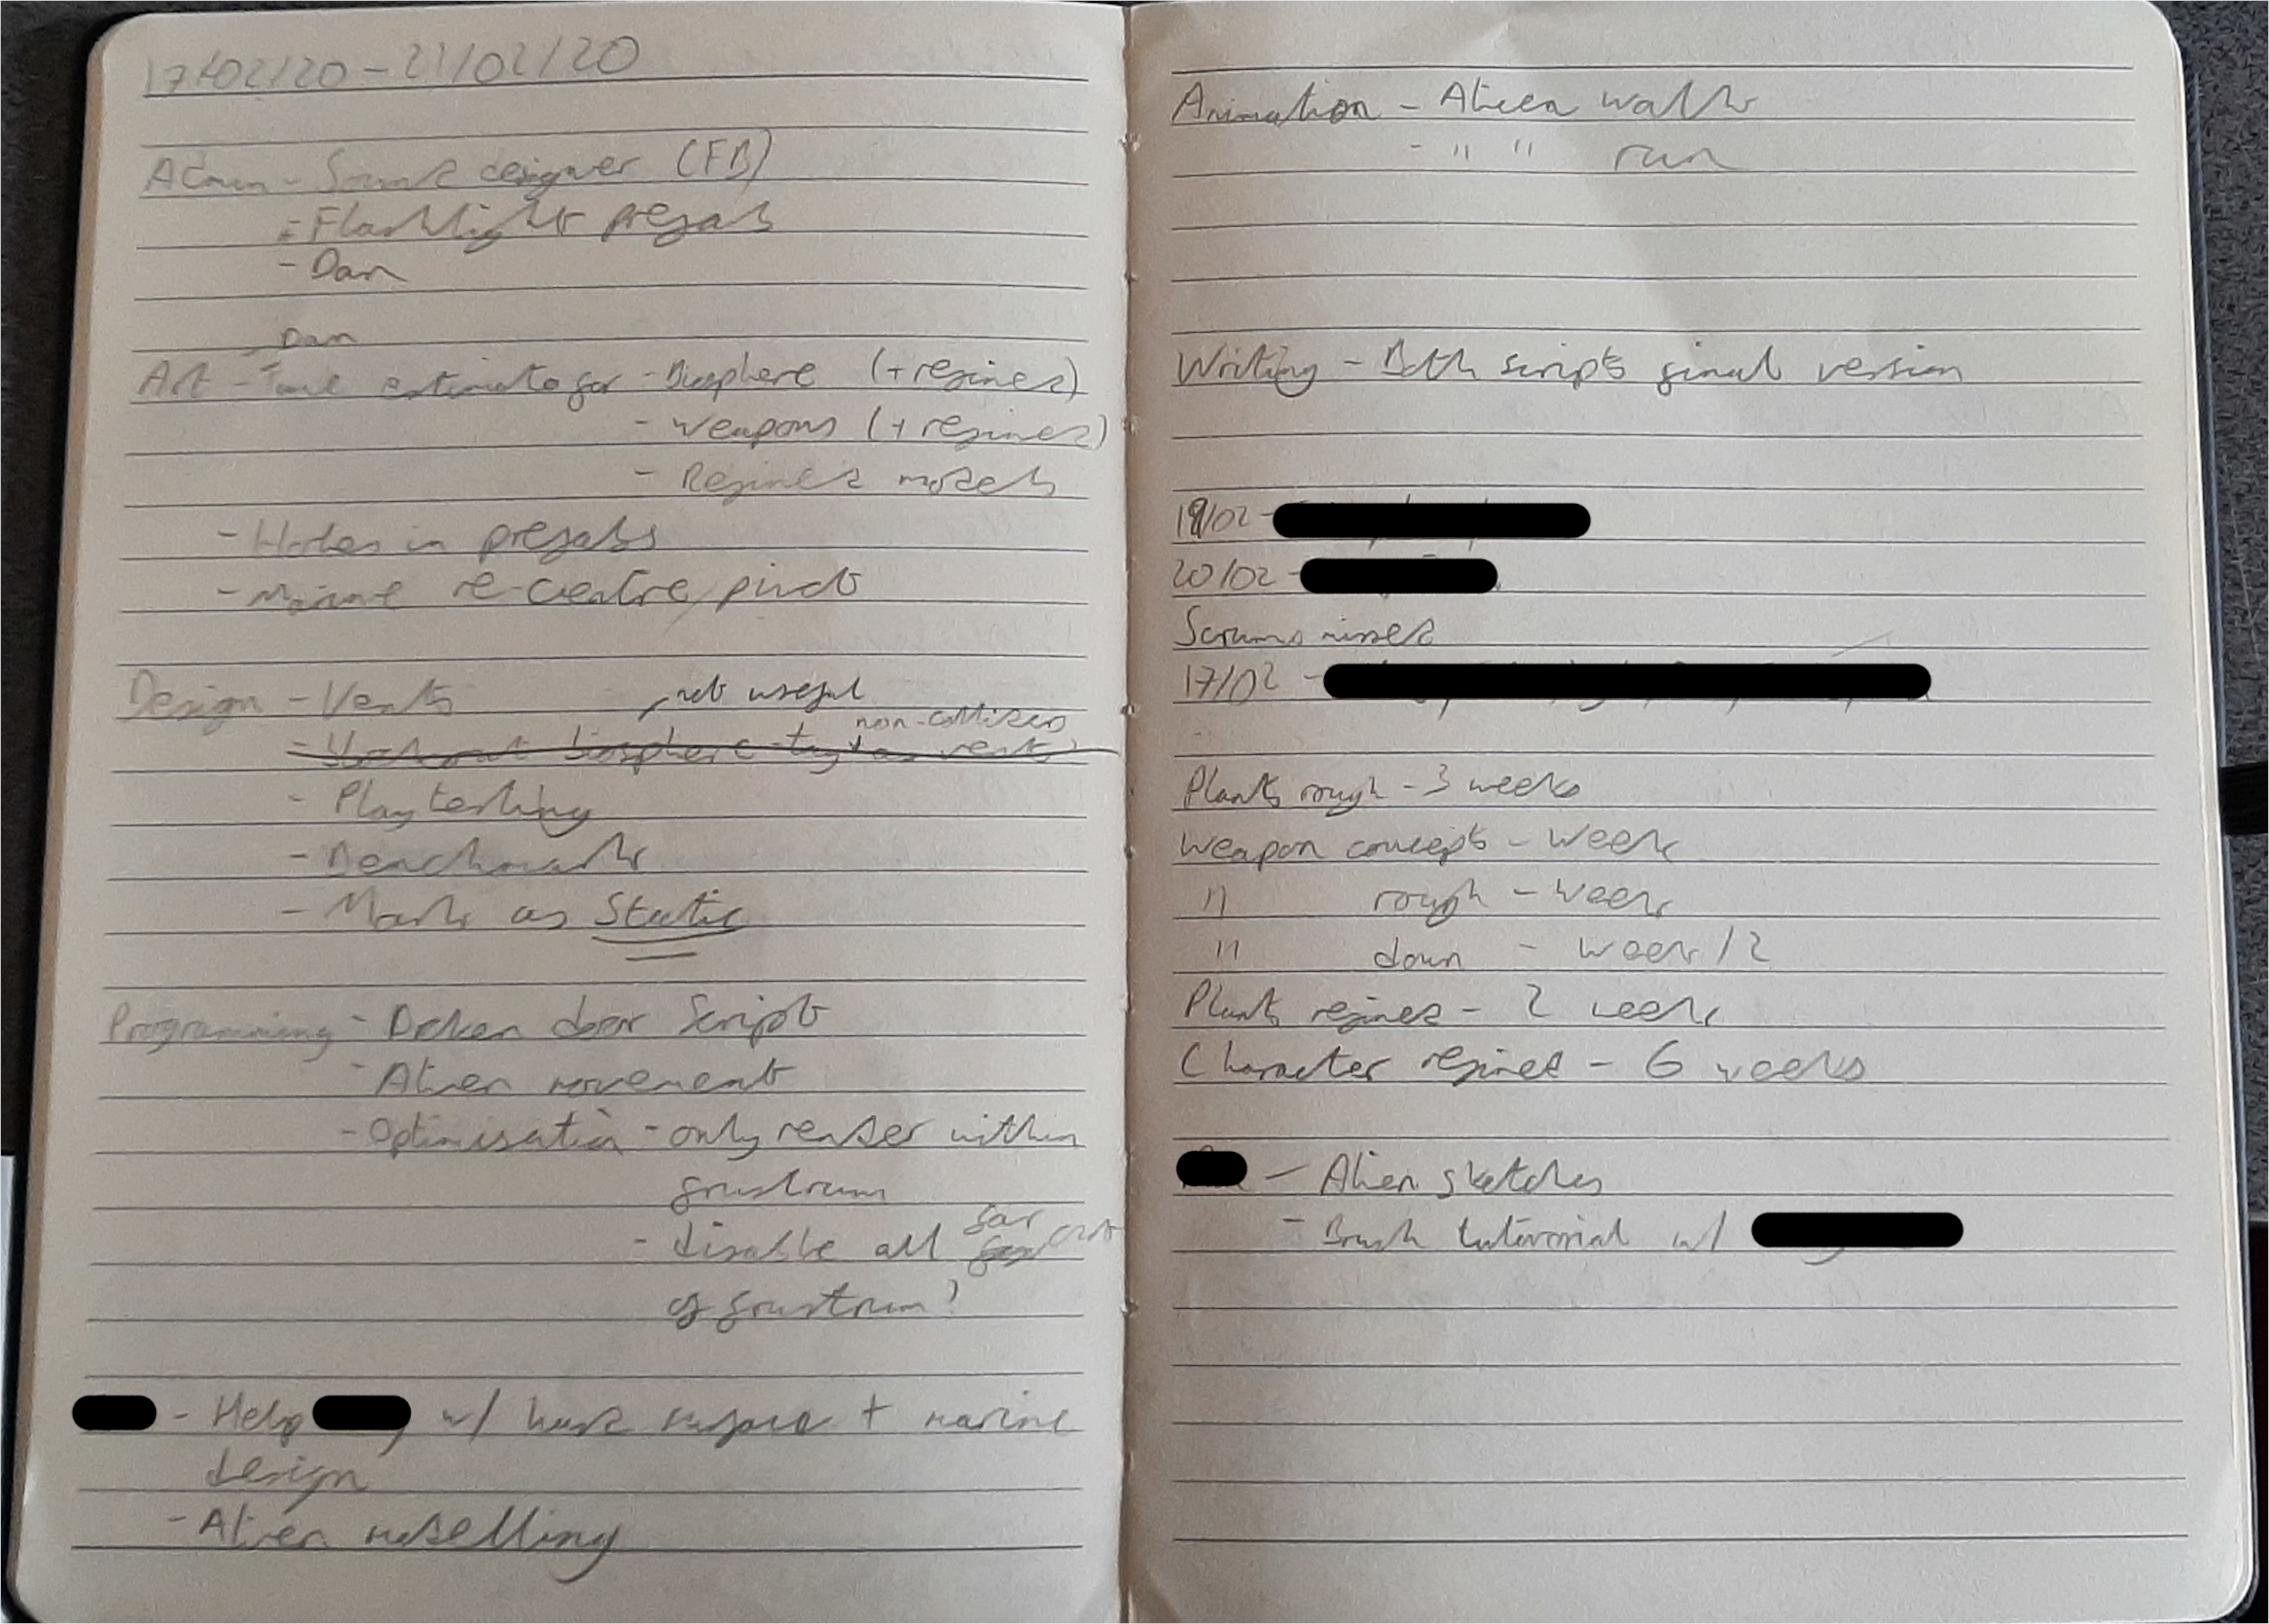 17/02/20 - 21/02/20
Admin - Sound designer (FB)
- Flashlight prefab
- Dan
Dan
Art - Time estimate for - Biosphere (+ refined)
- Weapons (+ refined)
- Refined models
- Holes in prefabs
- Marine re-centre/pivot
Design - Vents
not useful
non-colliders
- biosphere - try + as vents
- Playtesting
- Benchmark
- Mark as Static
Programming - Broken door Script
- Alien movement
- Optimisation - only render within
frustrum
- disable all far out
of frustrum?
- Help w/ hard surface + marine
design
- Alien modelling
Animation - Alien walk
- " " run
Writing - Both scripts final version
19/02 -
20/02 -
Scrums missed
17/02 -
Plants rough - 3 weeks
Weapon concepts - Week
" rough - Week
" down - week/2
Plants refined - 2 weeks
Character refined - 6 weeks
- Alien sketches
- Brush tutorial w/